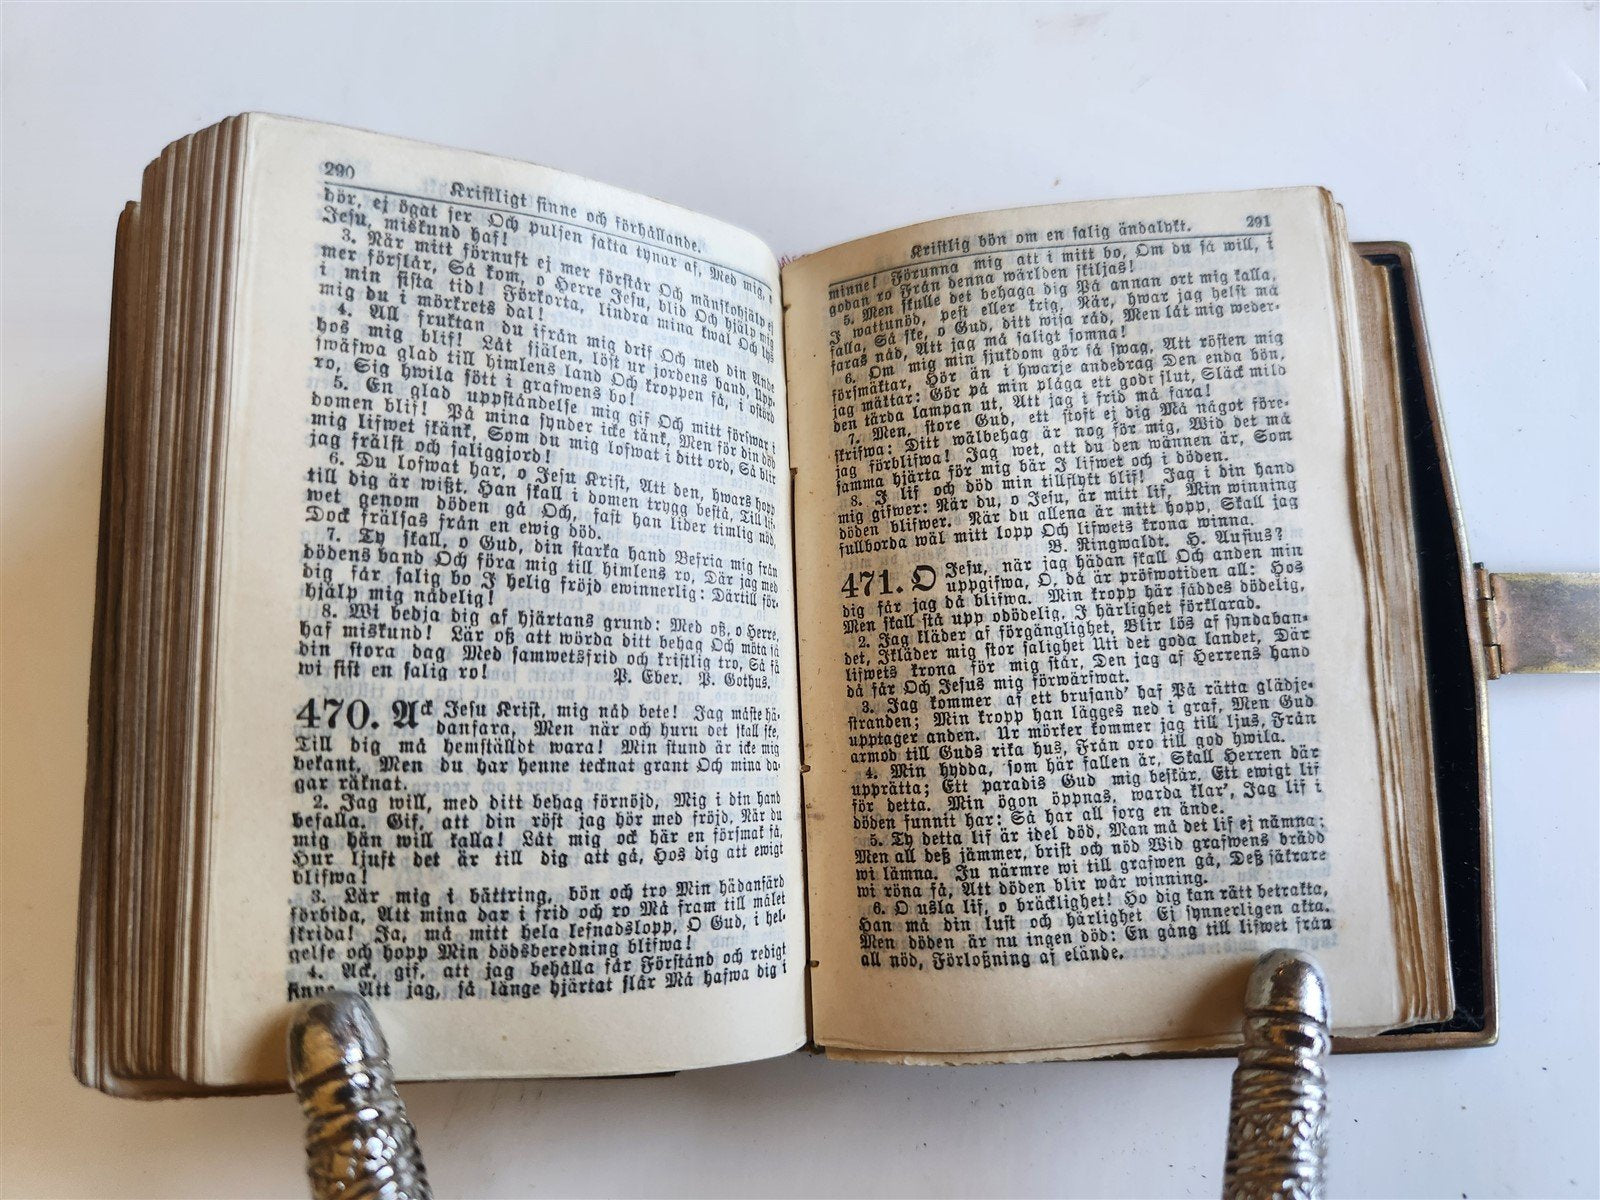 290
Kristligt sinne och förhållande.
hör, ej ögat ser Och pulsen sakta tynar af, Med mig, o
Jesu, miskund haf!
3. När mitt förnuft ej mer förstår Och mänskohjälp ej
mer förslår, Så kom, o Herre Jesu, blid Och hjälp mig
i min sista tid! Förkorta, lindra mina kwal Och lys
mig du i mörkrets dal!
4. All fruktan du ifrån mig drif Och med din Ande
hos mig blif! Låt själen, löst ur jordens band, Upp-
swäfwa glad till himlens land Och kroppen få, i ostörd
ro, Sig hwila sött i grafwens bo!
5. En glad uppståndelse mig gif Och mitt förswar i
domen blif! På mina synder icke tänk, Men för din död
mig lifwet skänk, Som du mig lofwat i ditt ord, Så blir
jag frälst och saliggjord!
6. Du lofwat har, o Jesu Krist, Att den, hwars hopp
till dig är wißt, Han skall i domen trygg bestå, Till lif-
wet genom döden gå Och, fast han lider timlig nöd,
Dock frälsas från en ewig död.
7. Ty skall, o Gud, din starka hand Befria mig från
dödens band Och föra mig till himlens ro, Där jag med
dig får salig bo I helig fröjd ewinnerlig: Därtill för-
hjälp mig nådelig!
8. Wi bedja dig af hjärtans grund: Med oß, o Herre,
haf miskund! Lär oß att wörda ditt behag Och möta så
din stora dag Med samwetsfrid och kristlig tro, Så få
wi sist en salig ro! P. Eber. P. Gothus.
470. Ack Jesu Krist, mig nåd bete! Jag måste hä-
danfara, Men när och huru det skall ske,
Till dig må hemställdt wara! Min stund är icke mig
bekant, Men du har henne tecknat grant Och mina da-
gar räknat.
2. Jag will, med ditt behag förnöjd, Mig i din hand
befalla. Gif, att din röst jag hör med fröjd, När du
mig hän will kalla! Låt mig ock här en försmak få,
Hur ljuft det är till dig att gå, Hos dig att ewigt
blifwa!
3. Lär mig i bättring, bön och tro Min hädanfärd
förbida, Att mina dar i frid och ro Må fram till målet
skrida! Ja, må mitt hela lefnadslopp, O Gud, i hel-
gelse och hopp Min dödsberedning blifwa!
4. Ack, gif, att jag behålla får Förstånd och redigt
sinne, Att jag, så länge hjärtat slår Må hafwa dig i
Kristlig bön om en salig ändalykt.
291
minne! Förunna mig att i mitt bo, Om du så will, i
godan ro Från denna wärlden skiljas!
5. Men skulle det behaga dig På annan ort mig kalla,
I wattunöd, pest eller krig, När, hwar jag helst må
falla, Så ske, o Gud, ditt wisa råd, Men låt mig weder-
faras nåd, Att jag må saligt somna!
6. Om mig min sjukdom gör så swag, Att rösten mig
försmäktar, Hör än i hwarje andedrag Den enda bön,
jag mäktar: Gör på min plåga ett godt slut, Släck mild
den tärda lampan ut, Att jag i frid må fara!
7. Men, store Gud, ett stoft ej dig Må något före-
skrifwa: Ditt wälbehag är nog för mig, Wid det må
jag förblifwa! Jag wet, att du den wännen är, Som
samma hjärta för mig bär I lifwet och i döden.
8. I lif och död min tillflykt blif! Jag i din hand
mig gifwer: När du, o Jesu, är mitt lif, Min winning
döden blifwer. När du allena är mitt hopp, Skall jag
fullborda wäl mitt lopp Och lifwets krona winna.
B. Ringwaldt. H. Ausius?
471. O Jesu, när jag hädan skall Och anden min
uppgifwa, O, då är pröfwotiden all: Hos
dig får jag då blifwa. Min kropp här föddes dödelig,
Men skall stå upp odödelig, I härlighet förklarad.
2. Jag kläder af förgänglighet, Blir lös af syndaban-
det, Ikläder mig stor salighet Uti det goda landet, Där
lifwets krona för mig står, Den jag af Herrens hand
då får Och Jesus mig förwärfwat.
3. Jag kommer af ett brusand' haf På rätta glädje-
stranden; Min kropp han lägges ned i graf, Men Gud
upptager anden. Ur mörker kommer jag till ljus, Från
armod till Guds rika hus, Från oro till god hwila.
4. Min hydda, som här fallen är, Skall Herren där
upprätta; Ett paradis Gud mig beskär, Ett ewigt lif
för detta. Min ögon öppnas, warda klar', Jag lif i
döden funnit har: Så har all sorg en ände.
5. Ty detta lif är idel död, Man må det lif ej nämna;
Men all deß jämmer, brist och nöd Wid grafwens brädd
wi lämna. Ju närmre wi till grafwen gå, Deß säkrare
wi röna få, Att döden blir wår winning.
6. O usla lif, o bräcklighet! Ho dig kan rätt betrakta,
Han må din lust och härlighet Ej synnerligen akta.
Men döden är nu ingen död: En gång till lifwet från
all nöd, Förloßning af elände.